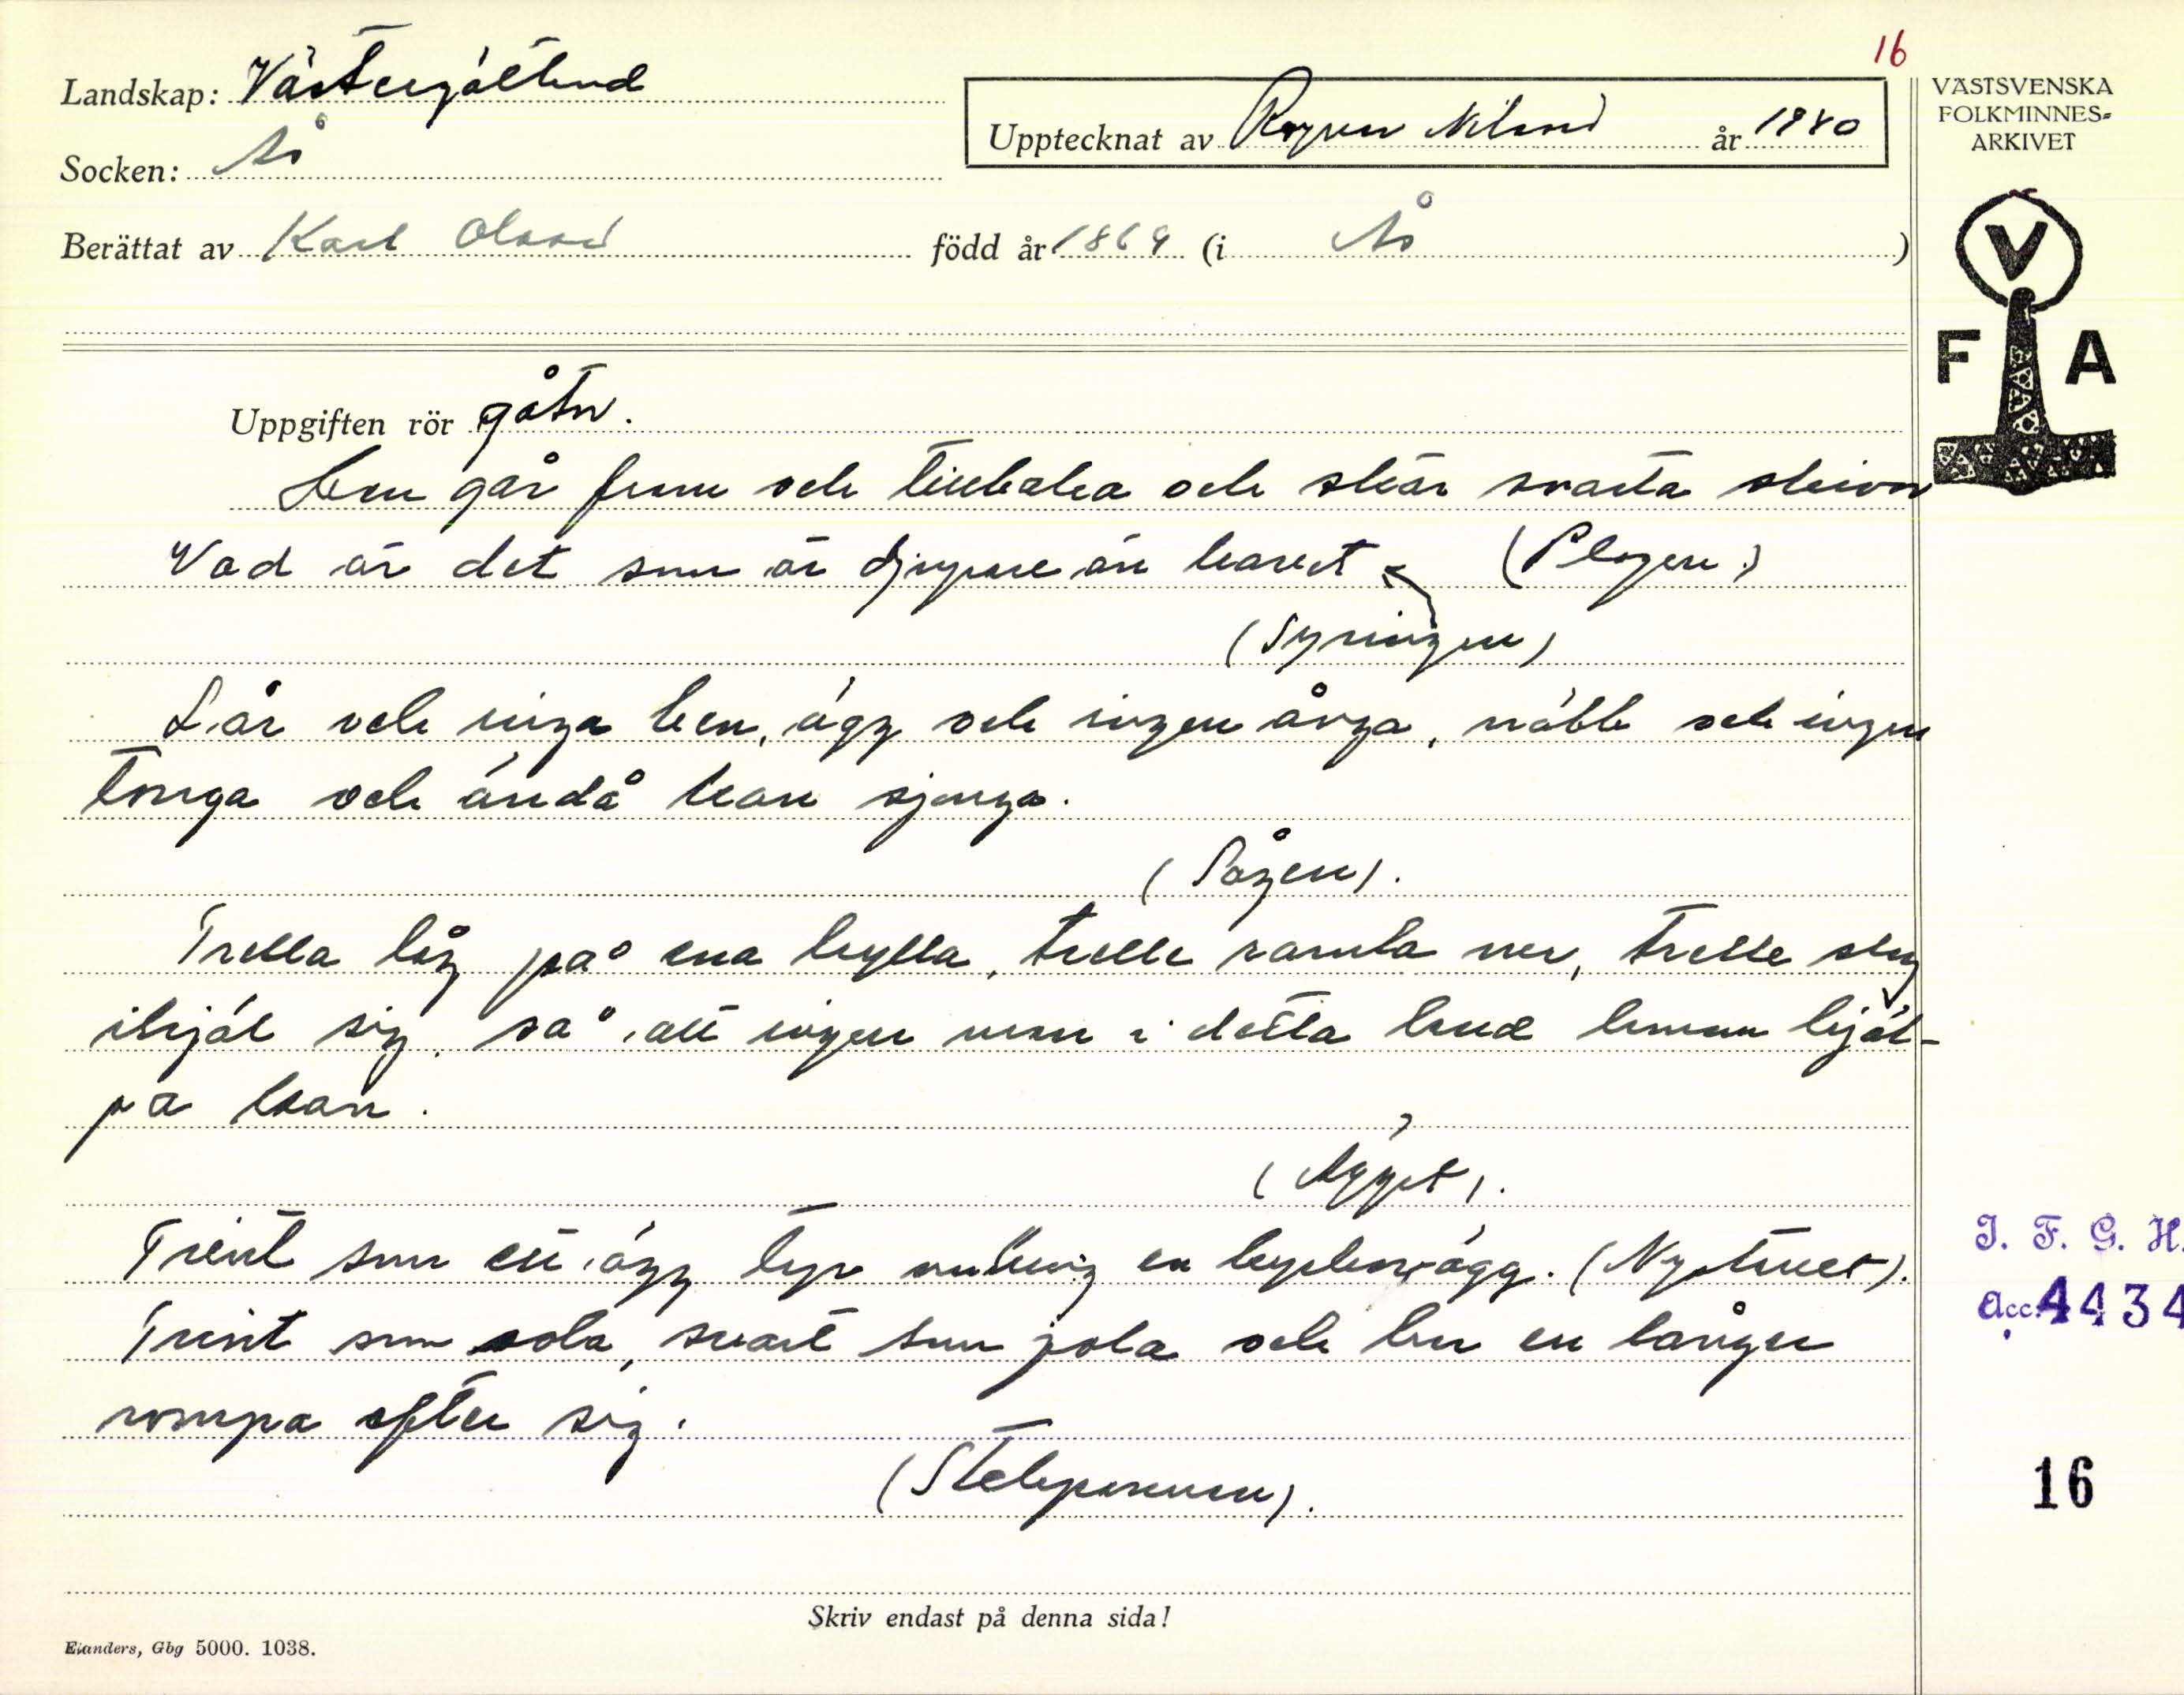 16
Landskap: Västergötland
Socken: Ås
Upptecknat av Ragnar Nilsson år 1940
VÄSTSVENSKA
FOLKMINNES-
ARKIVET
V
F A
Berättat av Karl Olsson född år 1869 (i Ås )
Uppgiften rör gåtor.
går fram och tillbaka och skär svarta skivor
Vad är det som är djupare än havet (Plogen)
(Syringen)
Lår och inga ben, ägg och ingen årga, näbb och ingen
tonga och ändå kan sjonga.
(Sågen).
Trilla låg på ena hylla, trille ramla ner, trille slog
ihjäl sig, så att ingen man i detta land kunna hjäl-
pa han.
(Ägget).
Trint som ett ägg en kyrkovägg. (Nystanet).
Trint som sola, svart som jola och har en långer
rompa efter sig.
(Stekpannan).
I. F. G. H.
Acc. 4434
16
Skriv endast på denna sida!
Elanders, Gbg 5000. 1038.